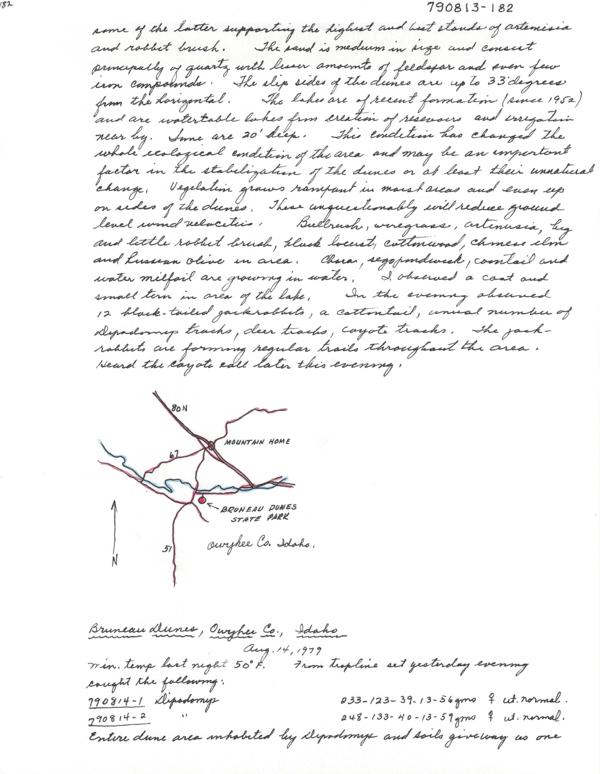 182
790813-182
some of the latter supporting the highest and best stands of artemisia
and rabbit brush. The sand is medium in size and consist
principally of quartz with lesser amounts of feldspar and even few
iron compounds. The slip sides of the dunes are up to 33 degrees
from the horizontal. The lakes are of recent formation (since 1952)
and are watertable lakes from creation of resevoirs and irrigation
near by. Some are 20' deep. This condition has changed the
whole ecological condition of the area and may be an important
factor in the stabilization of the dunes or at least their unnatural
change. Vegetation grows rampant in moist areas and even up
on sides of the dunes. These unquestionably will reduce ground
level wind velocities. Bullrush, wiregrass, artemisia, big
and little rabbit brush, black locust, cottonwood, chinese elm
and Russian olive in area. Chara, sego pondweek, coontail and
water milfoil are growing in water. I observed a coot and
small tern in area of the lake. In the evening observed
12 black-tailed jackrabbits, a cottontail, unusual number of
Dipodomys tracks, deer tracks, coyote tracks. The jack-
rabbits are forming regular trails throughout the area.
Heard the coyote call later this evening.
80N
MOUNTAIN HOME
67
BRUNEAU DUNES
STATE PARK
N
51
Owyhee Co. Idaho.
Bruneau Dunes, Owyhee Co., Idaho
Aug. 14, 1979
Min. temp last night 50°F. From trapline set yesterday evening
caught the following:
790814-1 Dipodomys 233-123-39-13-56gms ♀ ut. normal.
790814-2 " 248-133-40-13-59gms ♀ ut. normal.
Entire dune area inhabited by Dipodomys and soils giveway as one